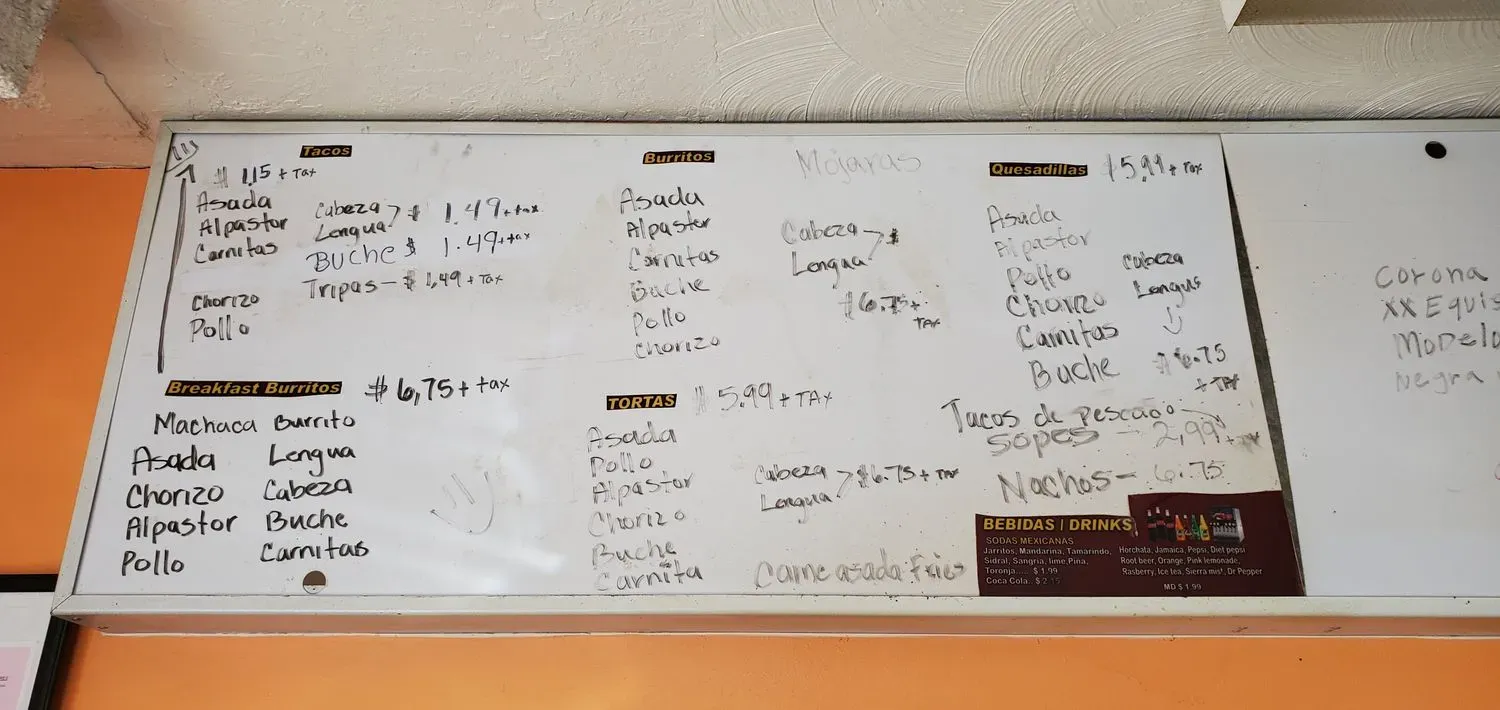 Tacos
$ 1.15 + Tax
Asada
Alpastor
Carnitas
Chorizo
Pollo
Cabeza
Lengua $ 1.49 + tax
Buche $ 1.49 + tax
Tripas - $ 1,49 + Tax
Breakfast Burritos $ 6,75 + tax
Machaca Burrito
Asada Lengua
Chorizo Cabeza
Alpastor Buche
Pollo Carnitas
Burritos
Asada
Alpastor
Carnitas
Buche
Pollo
Chorizo
Mojaras
Cabeza - $
Lengua
$6.75 +
TAX
TORTAS $ 5.99 + TAX
Asada
Pollo
Alpastor
Chorizo
Buche
Carnita
Cabeza
Lengua $6.75 + TAX
Carne asada Fries
Quesadillas $5.99 + Tax
Asada
Alpastor
Pollo
Chorizo
Carnitas
Buche
Cabeza
Lengus
$6.75
+ TAX
Tacos de pescado
Sopes - 2,99 + TAX
Nachos - 6.75
BEBIDAS / DRINKS
SODAS MEXICANAS
Jarritos, Mandarina, Tamarindo,
Sidral, Sangria, lime,Piña,
Toronja..... $ 1.99
Coca Cola.. $ 2.15
Horchata, Jamaica, Pepsi, Diet pepsi
Root beer, Orange, Pink lemonade,
Rasberry, Ice tea, Sierra mist, Dr Pepper
MD $ 1.99
Corona
XX Equis
Modelo
Negra